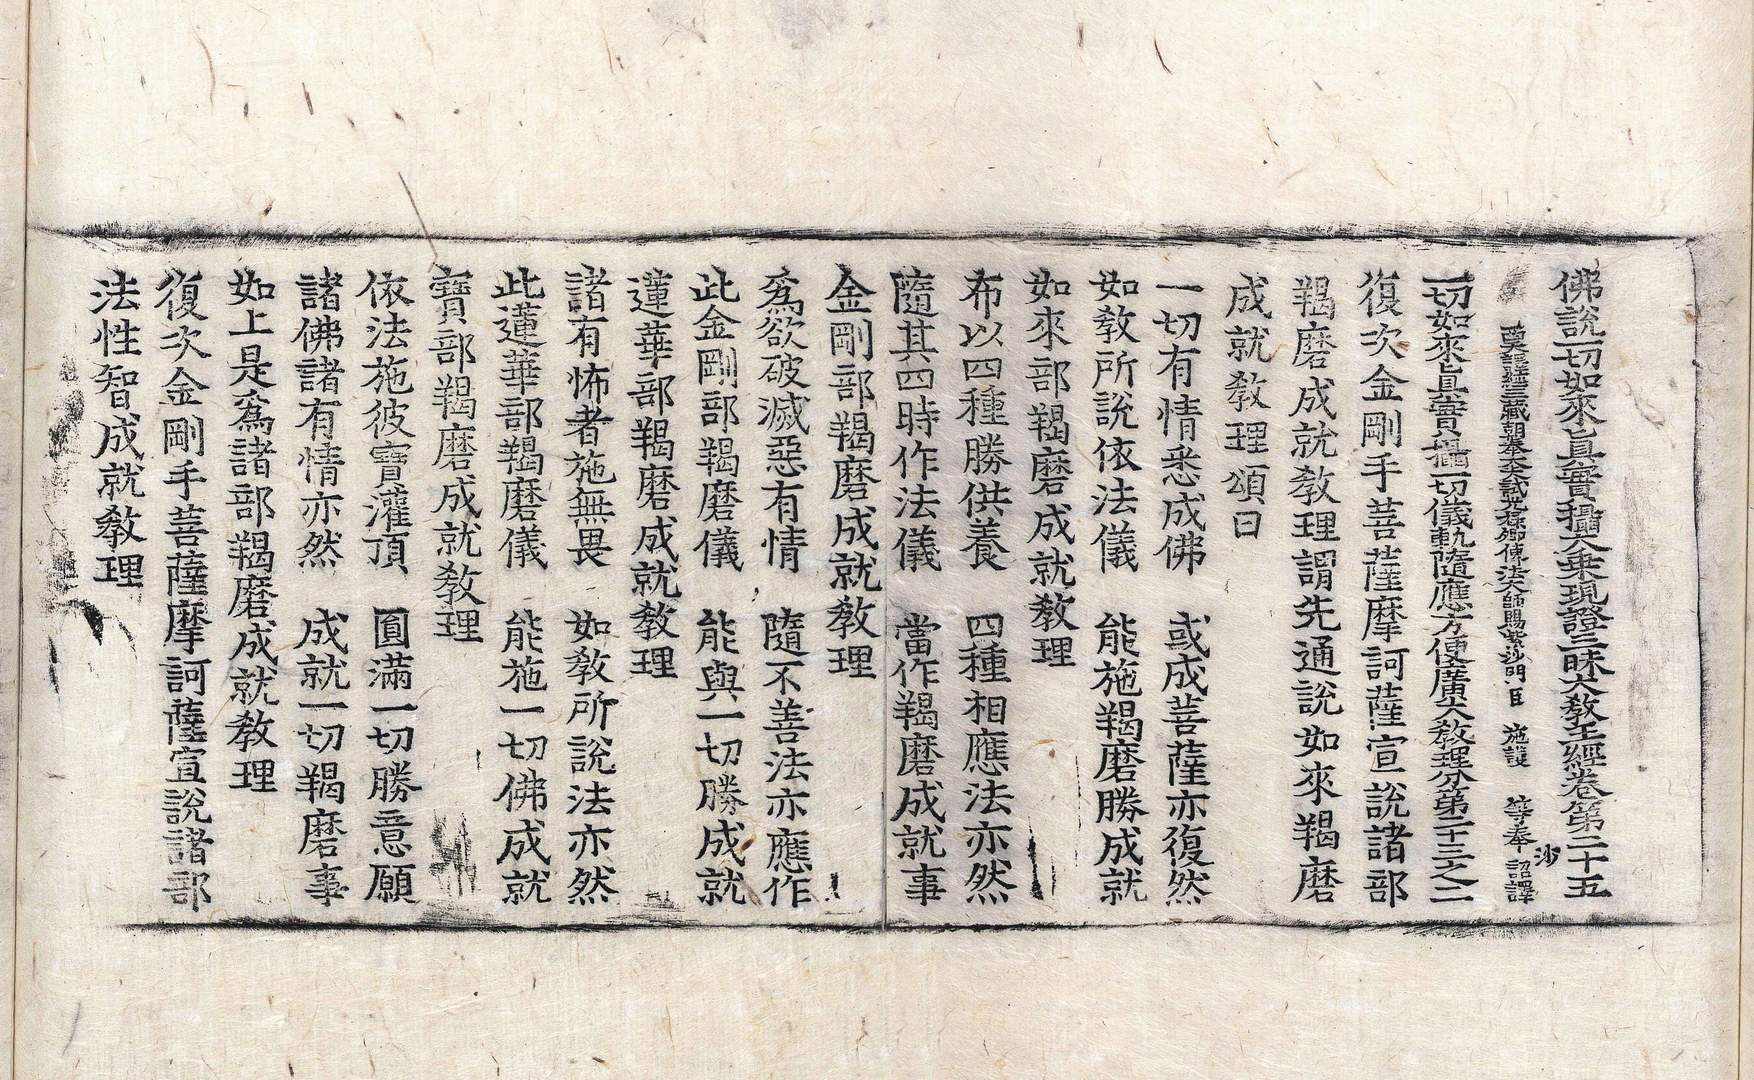 佛說一切如來眞實攝大乘現證三昧大教王經卷第二十五
沙
譯經三藏朝奉大夫試光祿卿傳法大師賜紫沙門臣 施護 等奉 詔譯
一切如來眞實攝一切儀軌隨應方便廣大教理分第二十三之二
復次金剛手菩薩摩訶薩宣說諸部
羯磨成就教理謂先通說如來羯磨
成就教理頌曰
一切有情悉成佛 或成菩薩亦復然
如教所說依法儀 能施羯磨勝成就
如來部羯磨成就教理
布以四種勝供養 四種相應法亦然
隨其四時作法儀 當作羯磨成就事
金剛部羯磨成就教理
爲欲破滅惡有情 隨不善法亦應作
此金剛部羯磨儀 能與一切勝成就
蓮華部羯磨成就教理
諸有怖者施無畏 如教所說法亦然
此蓮華部羯磨儀 能施一切佛成就
寶部羯磨成就教理
依法施彼寶灌頂 圓滿一切勝意願
諸佛諸有情亦然 成就一切羯磨事
如上是爲諸部羯磨成就教理
復次金剛手菩薩摩訶薩宣說諸部
法性智成就教理